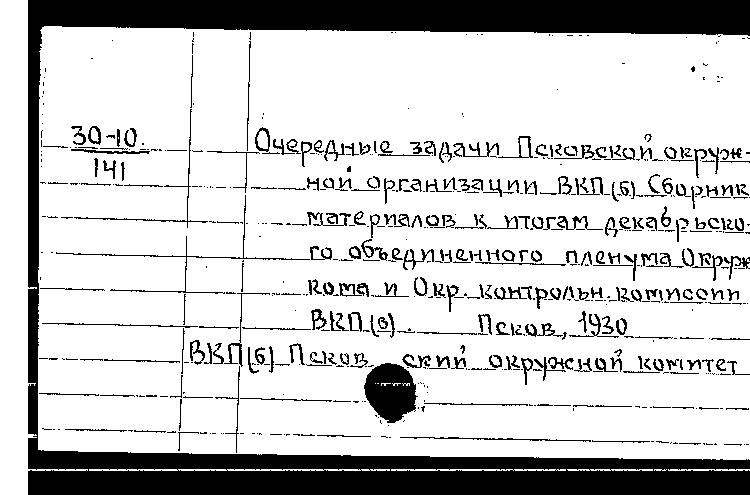 30-10.
141
Очередные задачи Псковской окруж-
ной организации ВКП(б) Сборник
материалов к итогам декабрьско-
го объединенного пленума Окруж
кома и Окр. контрольн. комиссии
ВКП(б). Псков, 1930
ВКП(б) Псковский окружной комитет